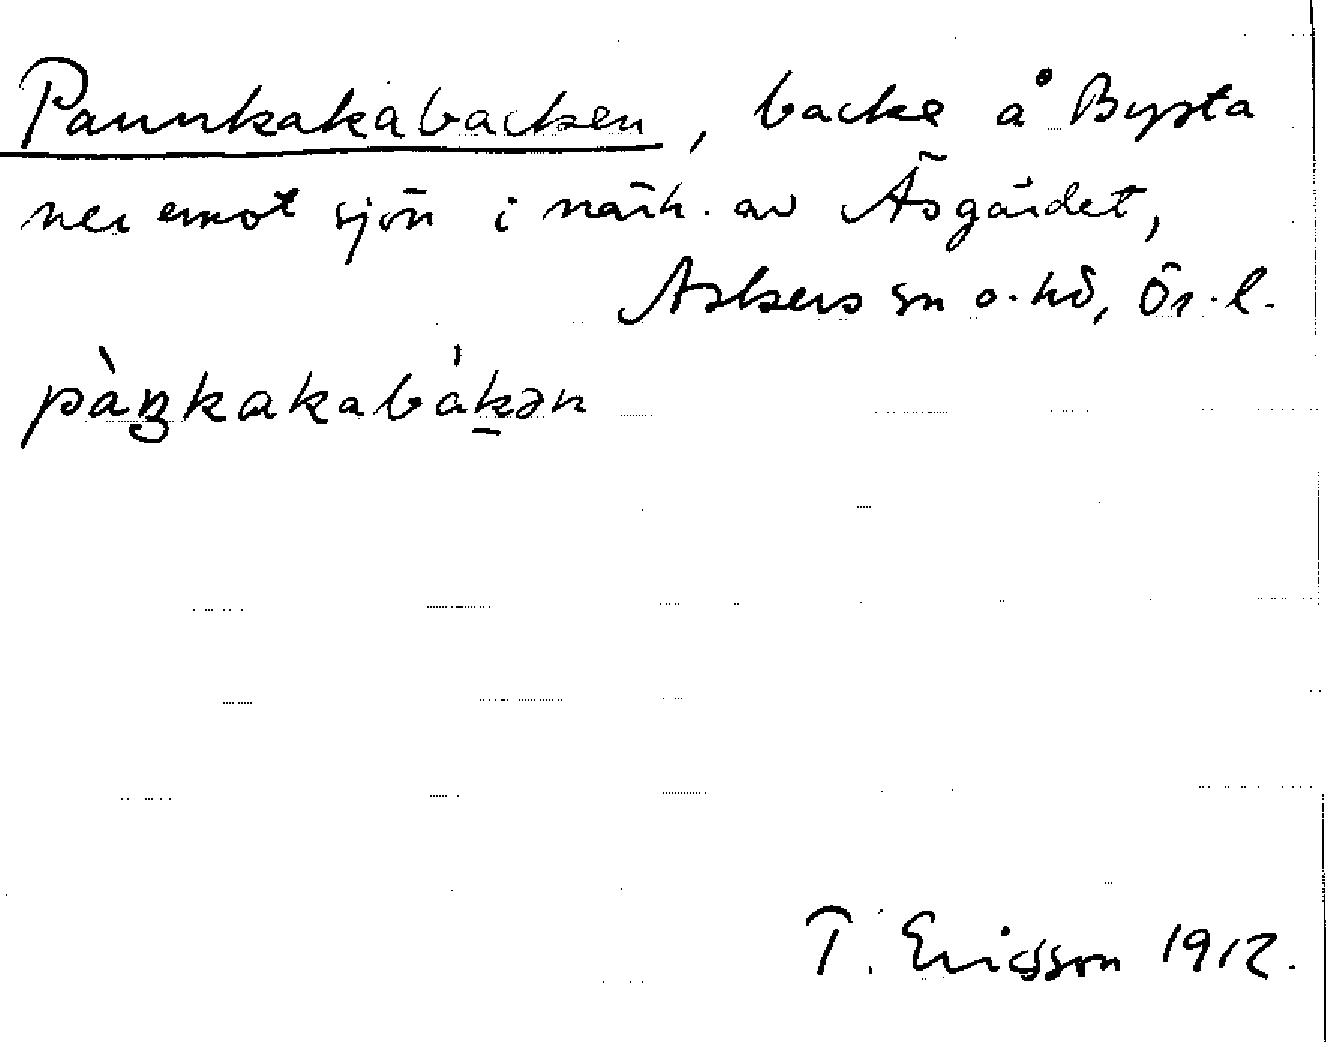 Pannkakabacken, backe å Bysta
ner emot sjön i närh. av Äsgärdet,
Askers sn o. hd, Ör. l.
pàŋkakabákən
T. Ericsson 1912.